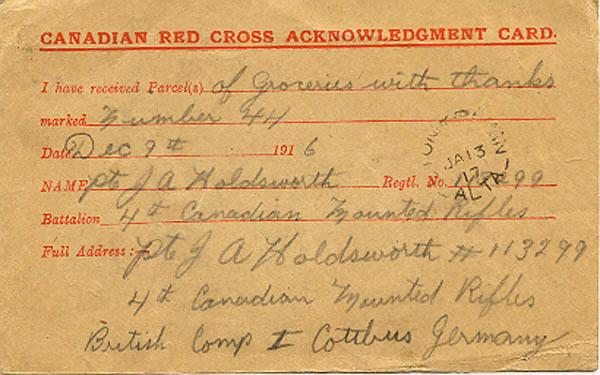 CANADIAN RED CROSS ACKNOWLEDGMENT CARD.
I have received Parcel(s) of Groceries with thanks
marked Number 44
Date Dec 9th 1916
NAME Pte J A Holdsworth Regtl. No. 113299
Battalion 4th Canadian Mounted Rifles
Full Address:- Pte J A Holdsworth # 113299
4th Canadian Mounted Rifles
British Comp I Cottbus Germany
JA 13
17